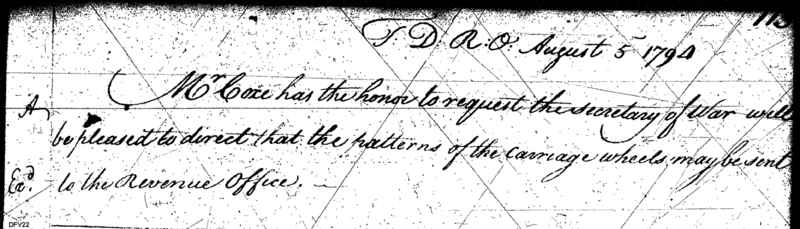 T. D. R. O. August 5 1794
Mr Coxe has the honor to request the secretary of War will
A
be pleased to direct that the patterns of the carriage wheels may be sent
Exd. to the Revenue Office. —
DFV22